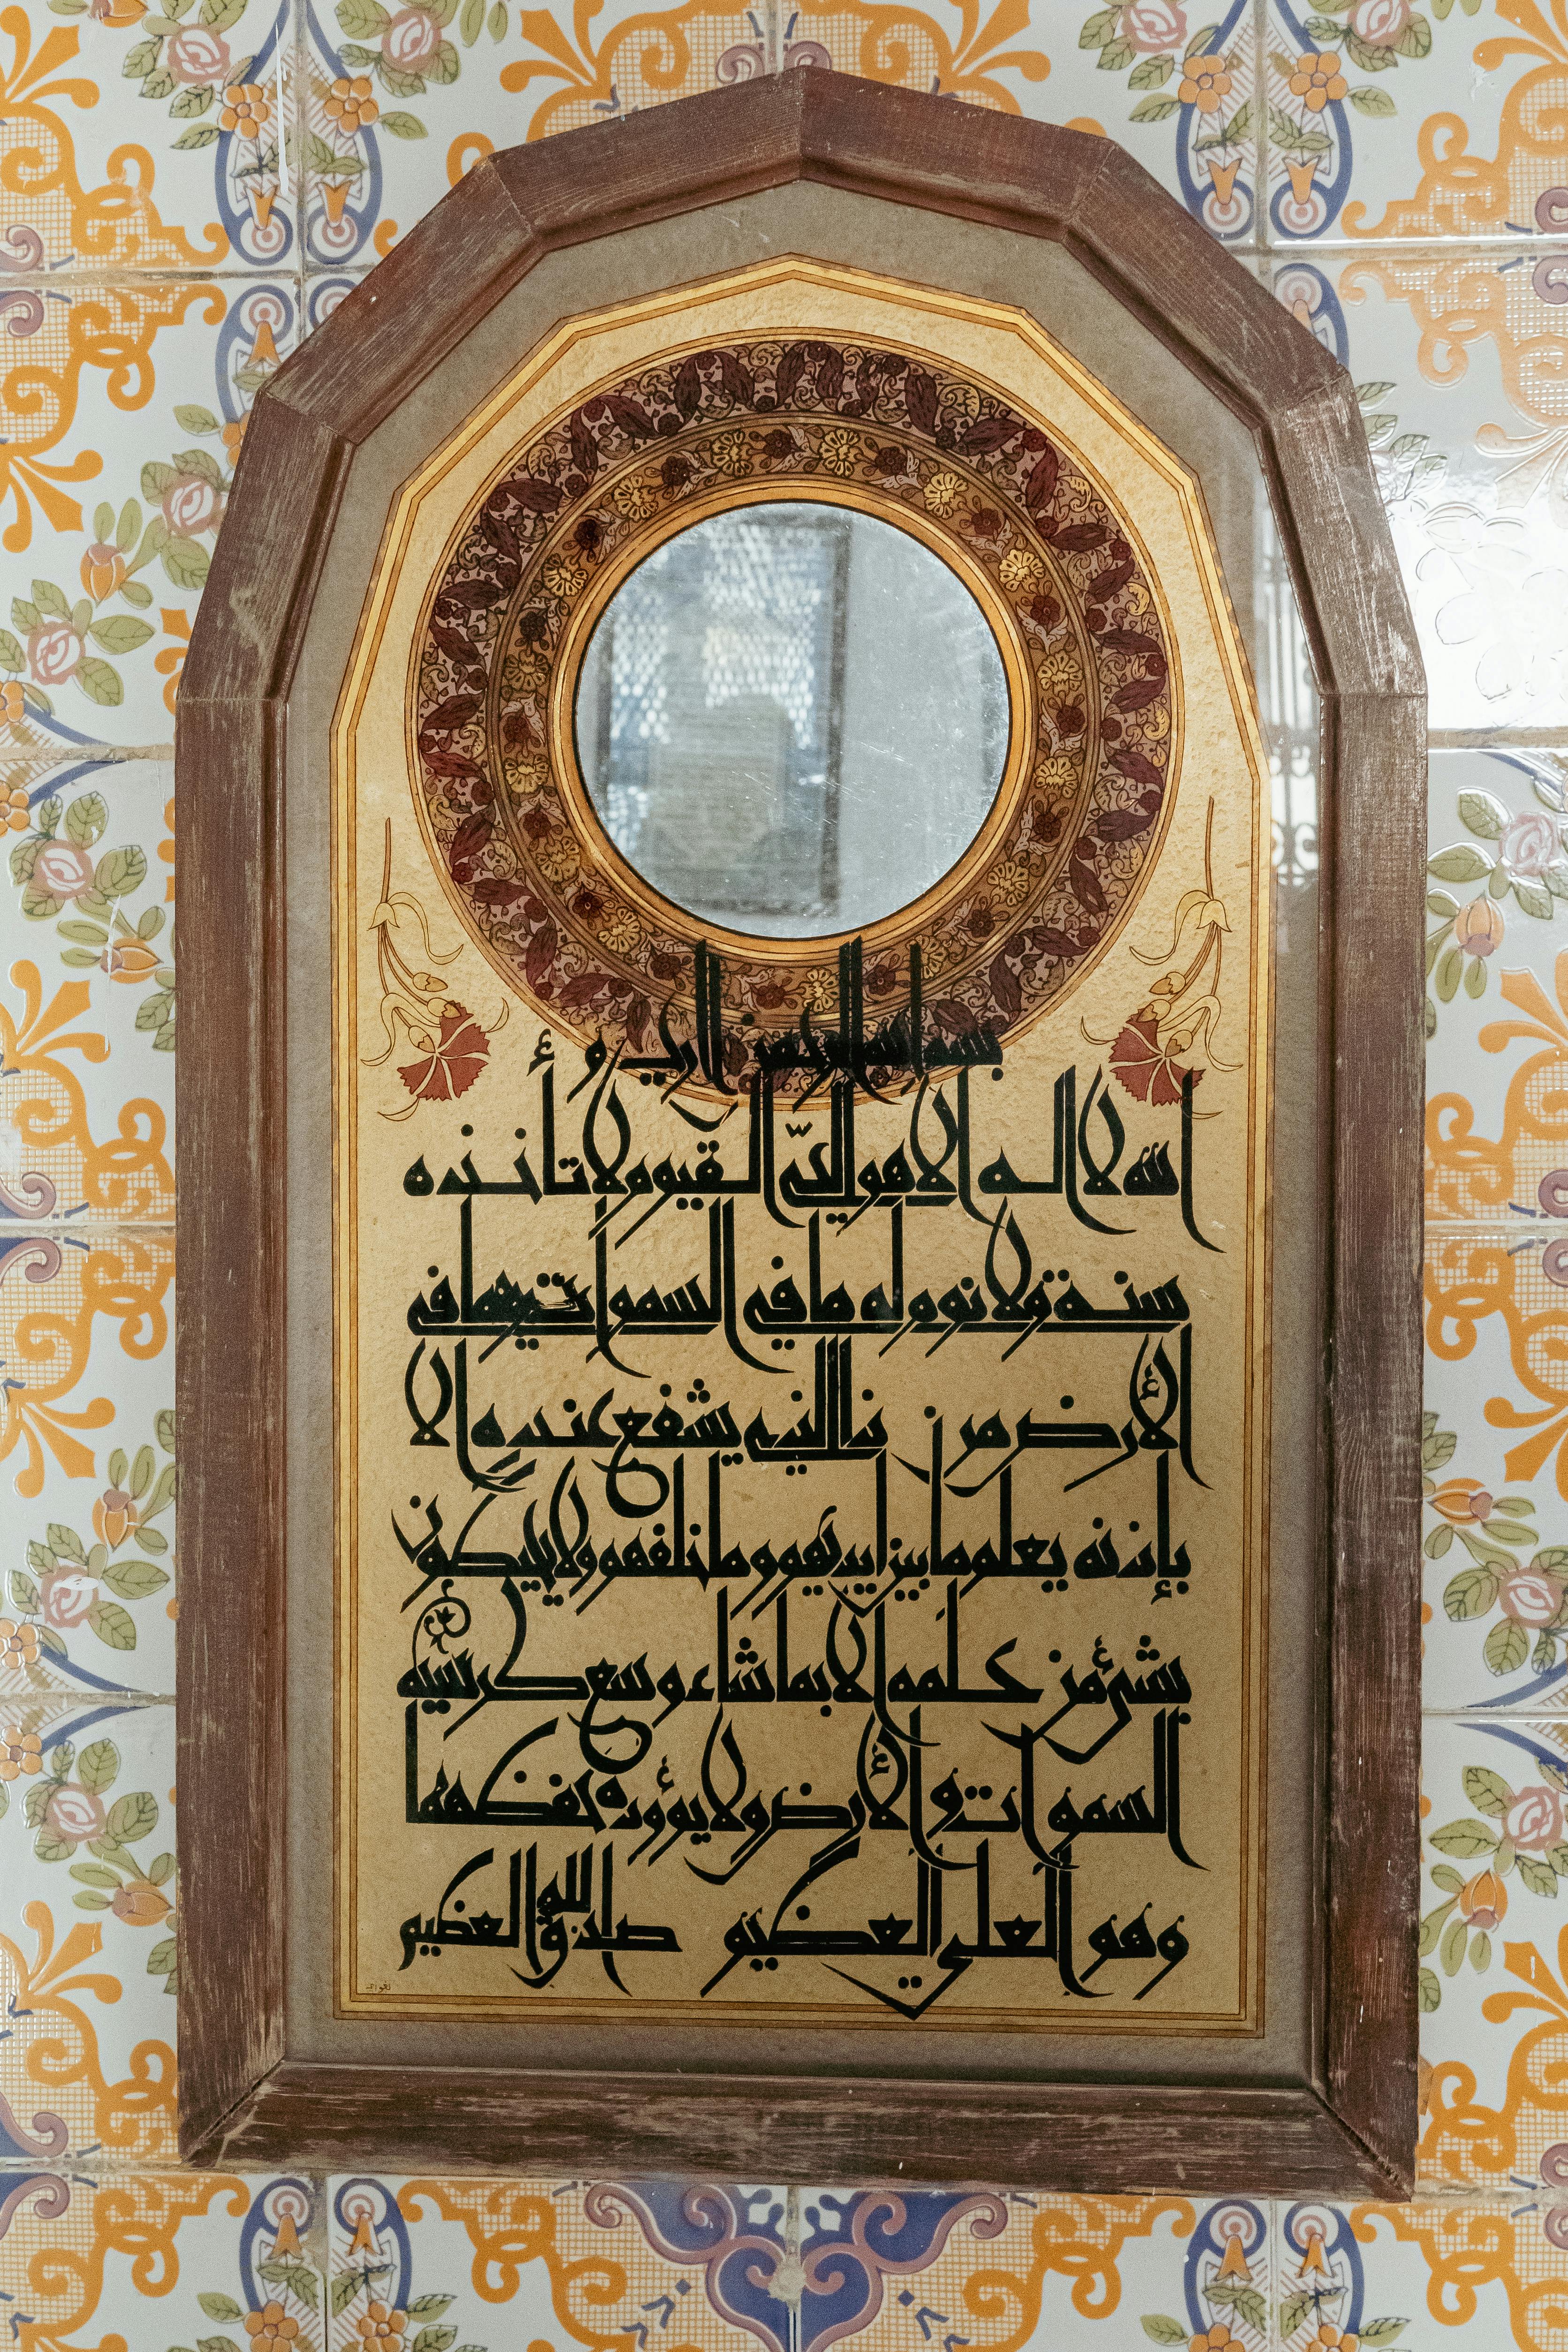 بسم الله الرحمن الرحيم
الله لا اله الا هو الحيّ القيوم لا تأخذه
سنة ولا نوم له ما في السموات وما في
الأرض من ذا الذي يشفع عنده إلا
بإذنه يعلم ما بين ايديهم وما خلفهم ولا يحيطون
بشئ من علمه الا بما شاء وسع كرسيه
السموات والأرض ولا يؤوده حفظهما
وهو العلي العظيم صدق الله العظيم